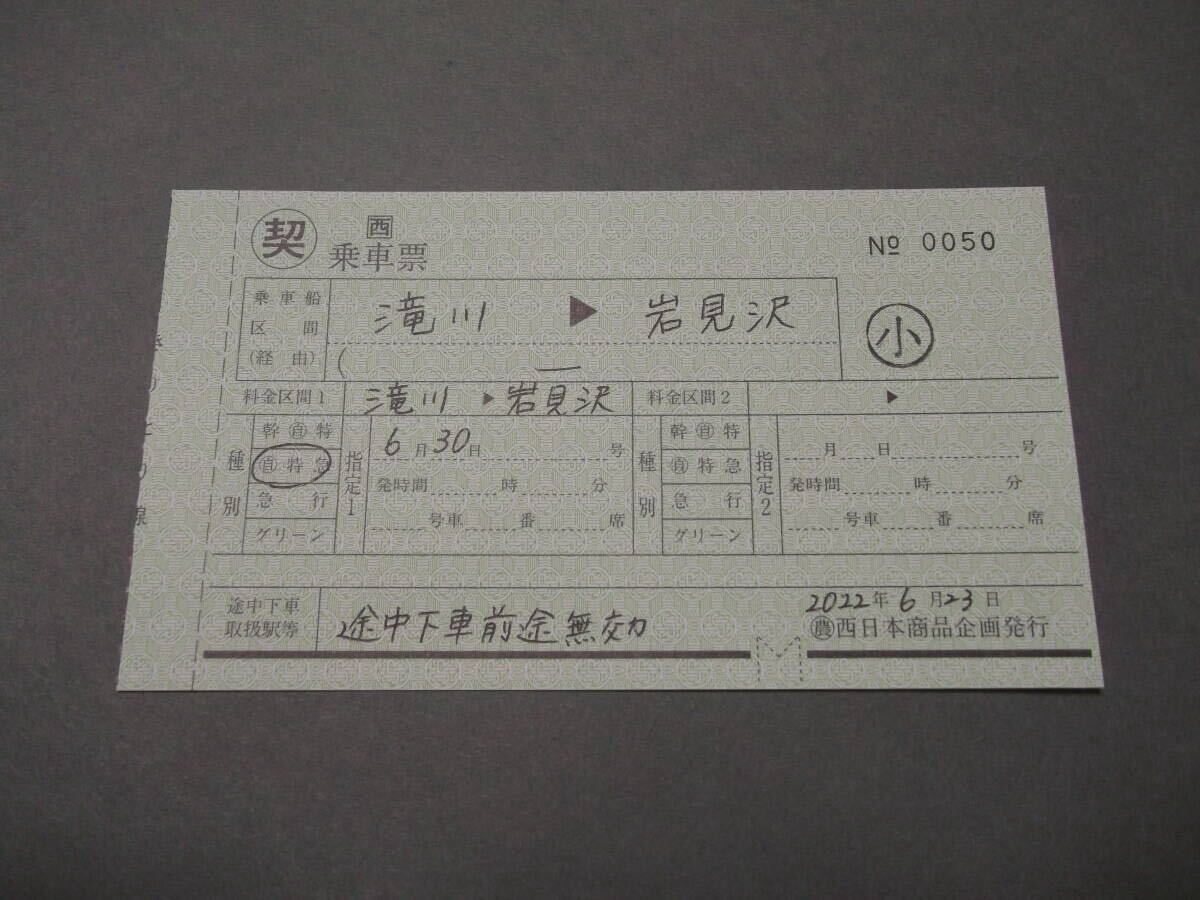 ㊎契 西
乗車票
№ 0050
乗車船
区間
(経由)
滝川 ▶ 岩見沢
( —
小
料金区間1 滝川 ▶ 岩見沢 料金区間2 ▶
種別
幹自特
自特急
急行
グリーン
指定1
6月30日 号
発時間 時 分
号車 番 席
種別
幹自特
自特急
急行
グリーン
指定2
月 日 号
発時間 時 分
号車 番 席
途中下車
取扱駅等
途中下車前途無効
2022年6月23日
農西日本商品企画発行
きりとり線